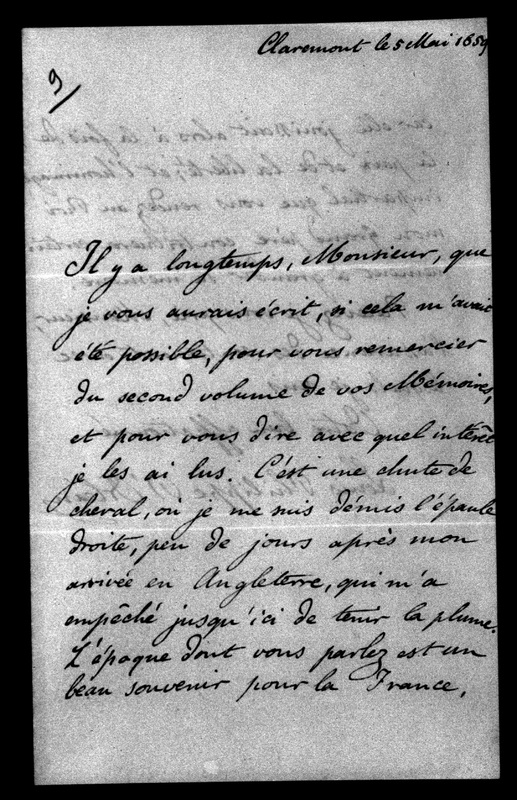 Claremont le 5 Mai 1859
9/
Il y a longtemps, Monsieur, que
je vous aurais écrit, si cela m'avait
été possible, pour vous remercier
du second volume de vos Mémoires,
et pour vous dire avec quel intérêt
je les ai lus. C'est une chute de
cheval, où je me suis démis l'épaule
droite, peu de jours après mon
arrivée en Angleterre, qui m'a
empêché jusqu'ici de tenir la plume.
L'époque dont vous parlez est un
beau souvenir pour la France,